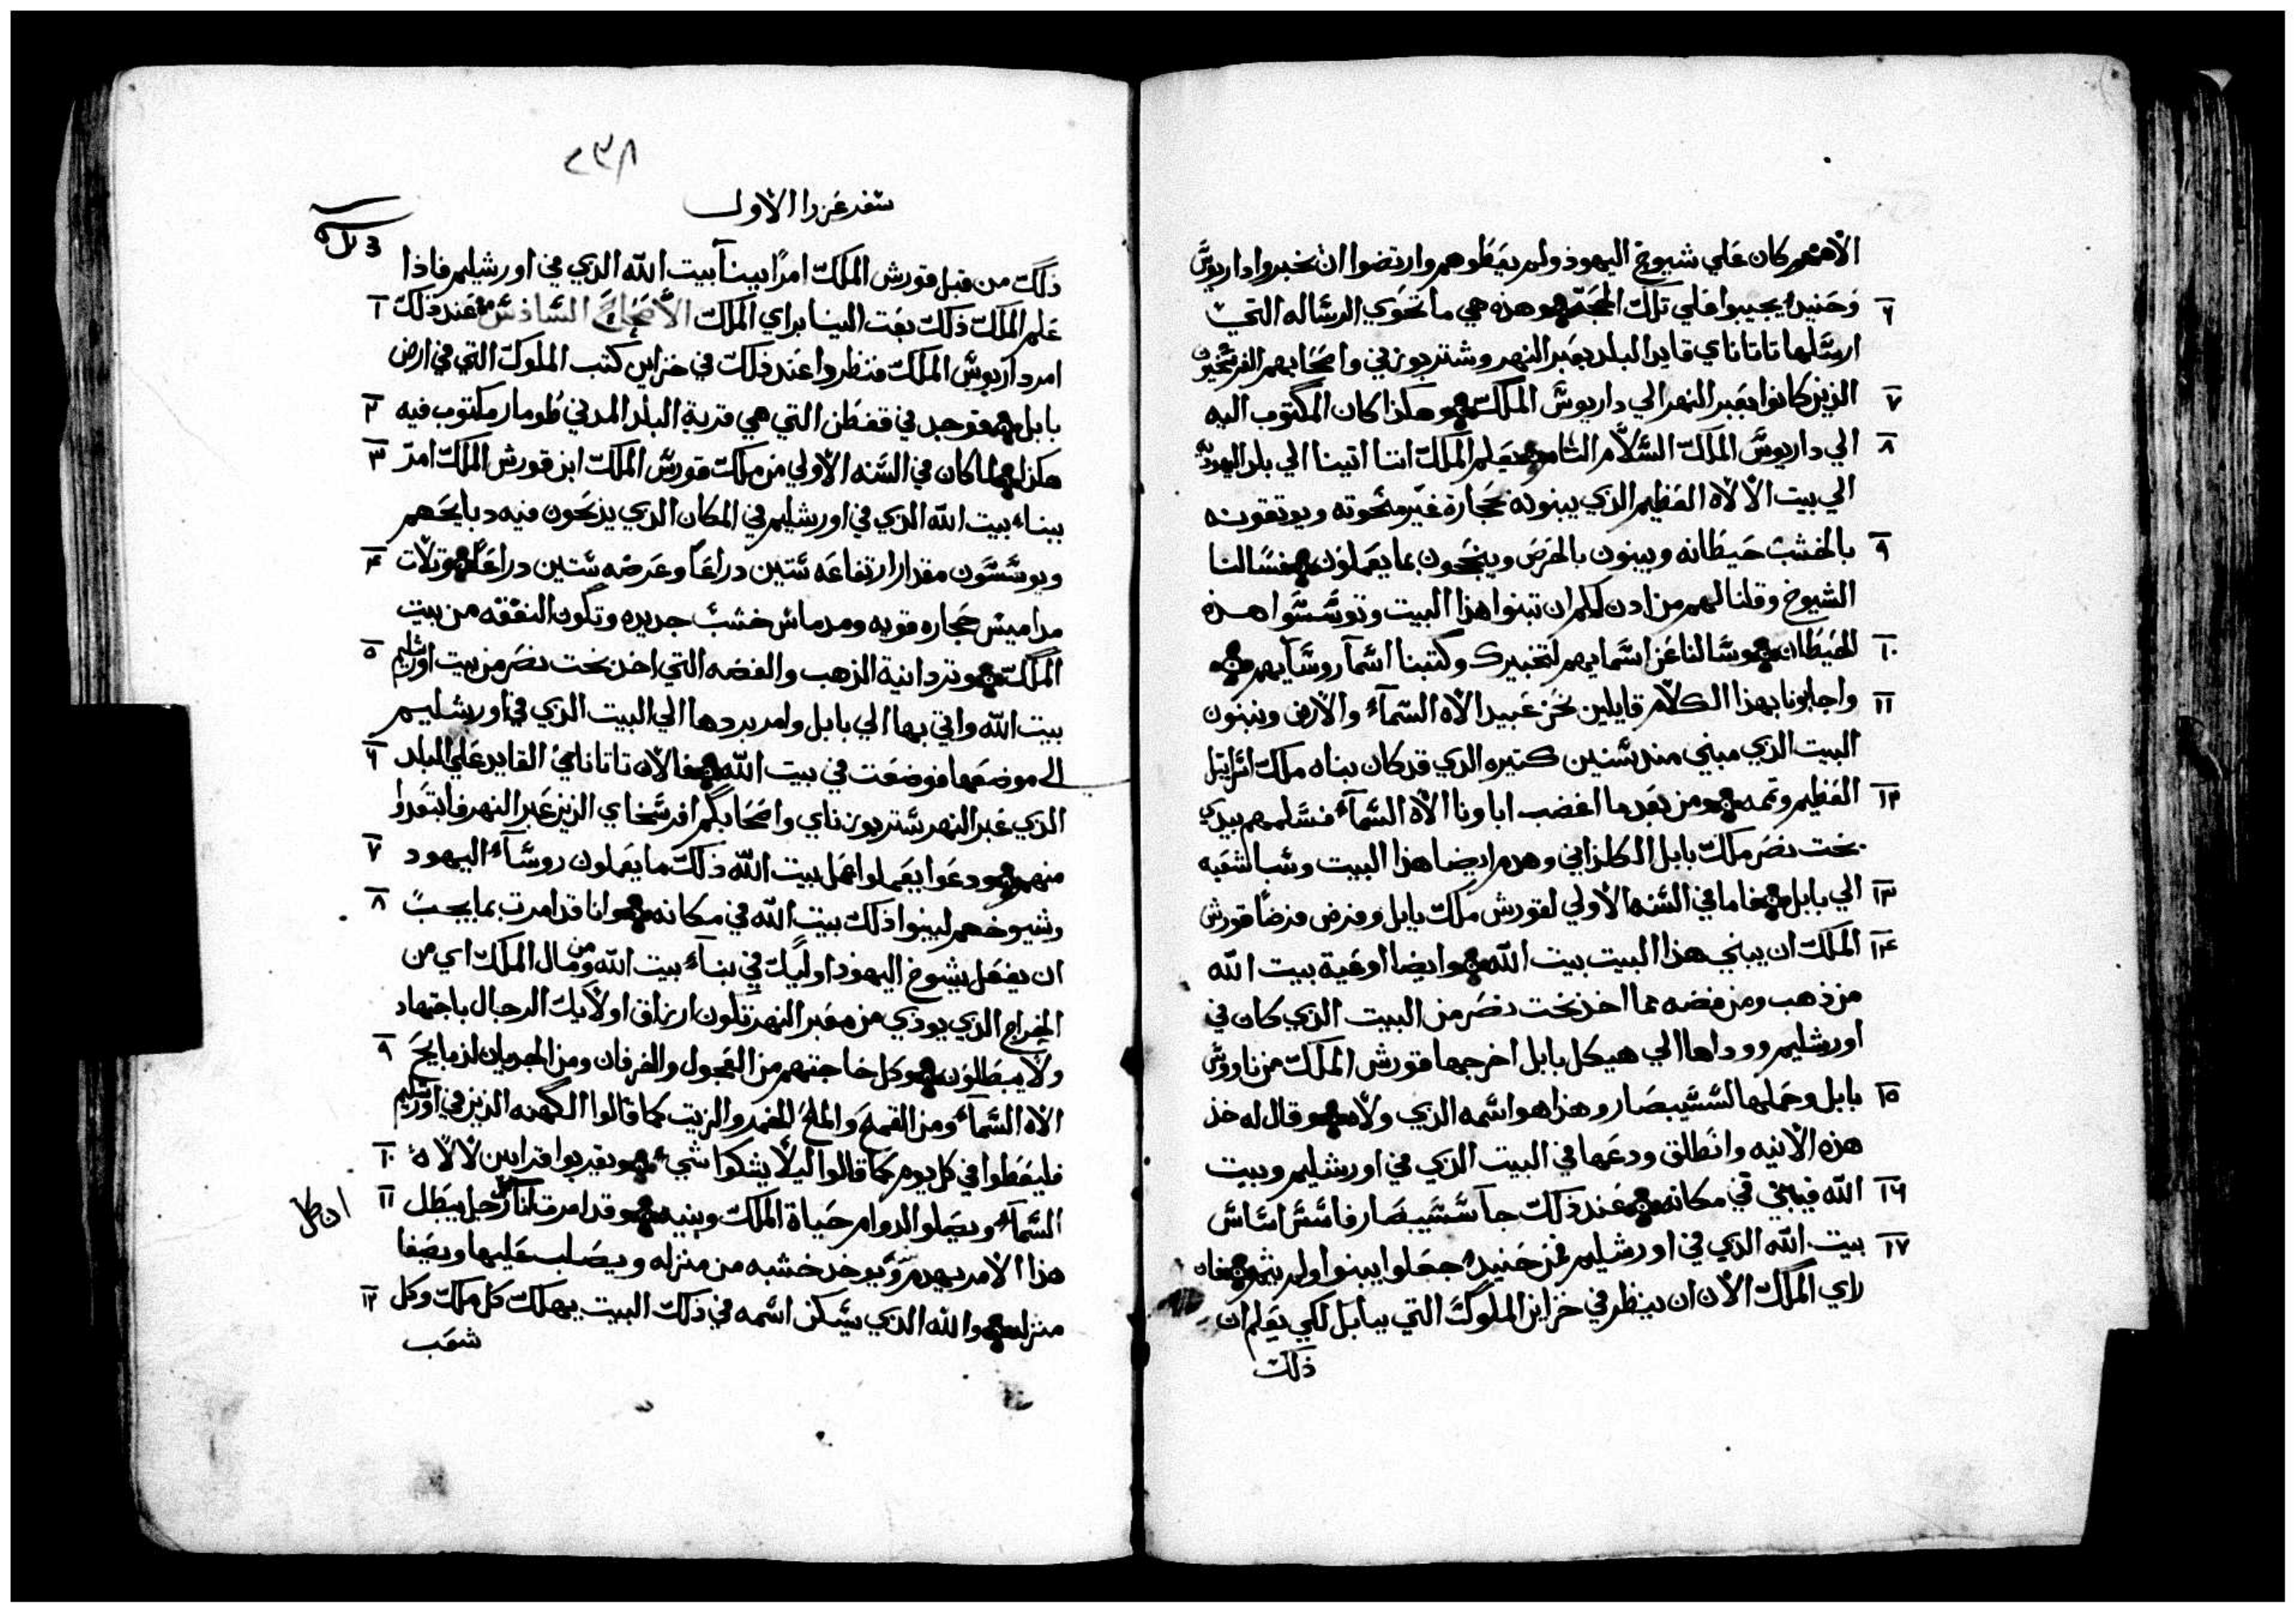 الاههم كان علي شيوخ اليهود ولم يبطلوهم وارتضوا ان يخبروا داريوش
٦ وحنيدٍ يجيبوا علي تلك الحجة وهذه هي ما تحوي الرساله التي
ارسلها تاتاناي قايد البلد بعبر النهر وشتربوزني واصحابهم
٧ الذين كانوا بعبر النهر الي داريوش الملك وهكذا كان المكتوب اليه
٨ الي داريوش الملك السلام التام يعلم الملك اننا اتينا الي بلد اليهوديه
الي بيت الالاه العظيم الذي يبنونه بحجارة غير منحوته ويوتقونه
٩ بالخشب حيطانه ويبنون بالحرص وينجحون بما يعملون فسالنا
الشيوخ وقلنا لهم من ادن لكم ان تبنوا هذا البيت وتوسسوا هذه
١٠ الحيطان وسالنا عن اسمايهم لنخبرك وكتبنا اسمآ روسآيهم
١١ واجابونا بهذا الكلام قايلين نحن عبيد الاه السمآء والارض ونبنون
البيت الذي مبني مند سنين كتيره الدي قد كان بناه ملك اسراييل
١٢ العظيم وتمه ومن بعد ما اغضب اباونا الاه السمآء فسلمهم بيدي
بخت نصر ملك بابل الكلداني وهدم ايضا هذا البيت وسبا الشعبه
١٣ الي بابل فاما في السنه الاولي لقورش ملك بابل وفرض فرضًا قورش
١٤ الملك ان يبني هذا البيت بيت الله وايضا اوعية بيت الله
من ذهب ومن فضه مما اخذ بخت نصر من البيت الذي كان في
اورشليم ووداها الي هيكل بابل اخرجها قورش الملك من ناووس
١٥ بابل وحملها لششيبصار وهذا هو اسمه الذي ولاه وقال له خذ
هذه الانيه وانطلق ودعها في البيت الذي في اورشليم وبيت
١٦ الله فيبني في مكانه عند ذلك جآ ششيبصار فاسس اساس
١٧ بيت الله الذي في اورشليم فمن حنيدٍ جعلوا يبنوا ولم يتم فان
راي الملك الان ان ينظر في خزاين الملوك التي ببابل لكي يعلم ان
ذلك
٢٣٨
سفر عزرا الاول
ذلك من قبل قورش الملك امرًا ببنآ بيت الله الذي في اورشليم فاذا
١ علم الملك ذلك بعت الينا براي الملك الاصحاح السادس عند ذلك
امر داريوش الملك فنظروا عند ذلك في خزاين كتب الملوك التي في ارض
٢ بابل فوجد في قفطن التي هي قرية البلد المدني طومار مكتوب فيه
٣ هكذا لما كان في السنه الاولي من ملك قورش الملك ابن قورش الملك امر
ببناء بيت الله الذي في اورشليم في المكان الذي يذبحون فيه دبايحهم
٤ ويوسسون مقدار ارتفاعه ستين دراعًا وعرضه ستين دراعًا وتلات
مداميس حجاره قويه ومدماس خشب جديده وتكون النفقه من بيت
٥ الملك وترد انية الذهب والفضه التي اخد بخت نصر من بيت اورشليم
بيت الله واتي بها الي بابل وامر بردها الي البيت الذي في اورشليم
٦ الي موضعها فوضعت في بيت الله فالان تاتاناي القايد علي البلد
الذي عبر النهر شتربوزناي واصحابكم افرسخاي الذين عبر النهر فابتعدوا
٧ منهم ودعوا يعملوا عمل بيت الله ذلك ما يعملون روسآء اليهود
٨ وشيوخهم ليبنوا ذلك بيت الله في مكانه وانا قد امرت بما يجب
ان يفعل بشيوخ اليهود اوليك في بناء بيت الله ومن مال الملك اي من
الخراج الذي يودي من معبر النهر تكون ارزاق اولايك الرجال باجتهاد
٩ ولا يبطلون وكل حاجتهم من العجول والخرفان ومن الجديان لذبايح
الاه السمآء ومن القمح والملح الخمر والزيت كما قالوا الكهنه الذين في اورشليم
١٠ فليعطوا في كل يوم كما قالوا ليلا يشكوا شيء ويقربوا قرابين لالاه
١١ السمآء ويصلوا لدوام حياة الملك وبنيه وقد امرت انا ان كل رجل يبطل
هذا الامر يهدم ويوخد خشبه من منزله ويصلب عليها ويصفا
١٢ منزله والله الذي يسكن اسمه في ذلك البيت يهلك كل ملك وكل
شعب